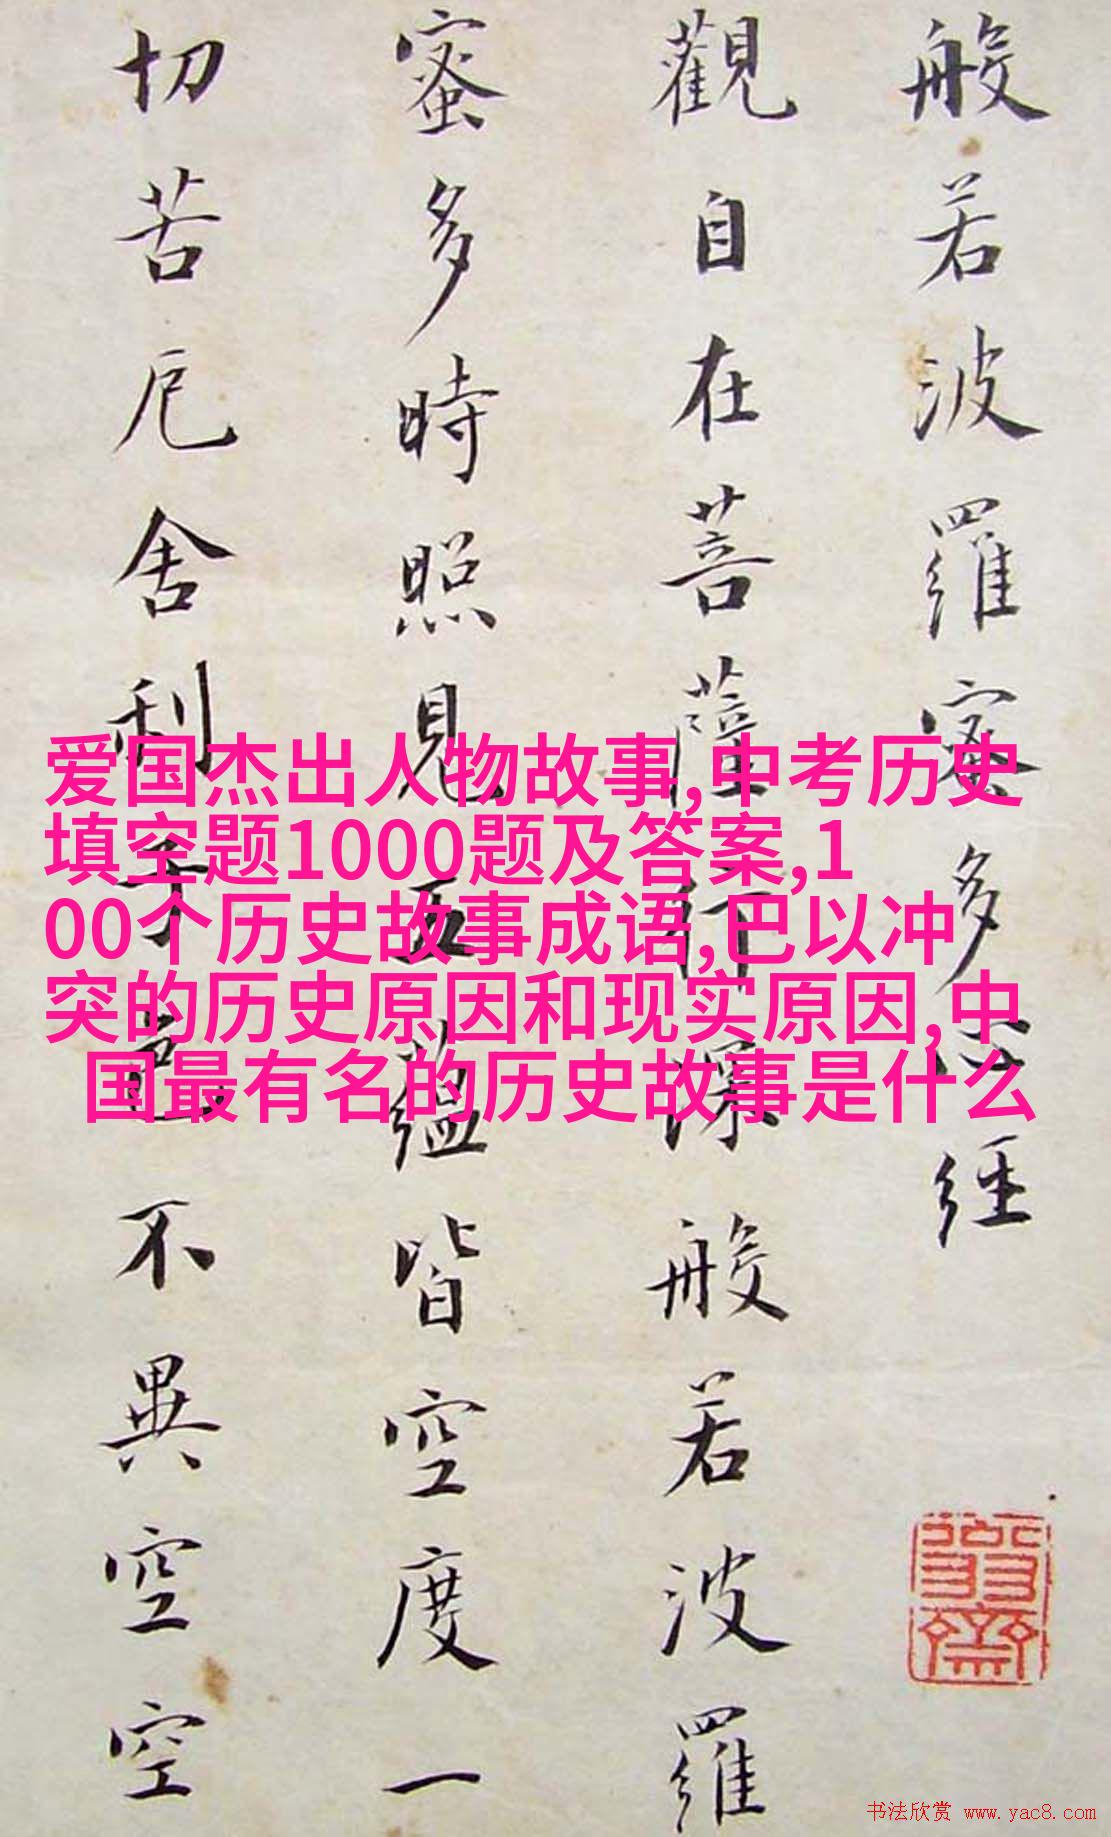 般若波羅蜜多心經
觀自在菩薩行深般若波羅
蜜多時照見五蘊皆空度一
切苦厄舍利子色不異空空
爱国杰出人物故事,中考历史
填空题1000题及答案,1
00个历史故事成语,巴以冲
突的历史原因和现实原因,中
国最有名的历史故事是什么
书法欣赏 www.yac8.com